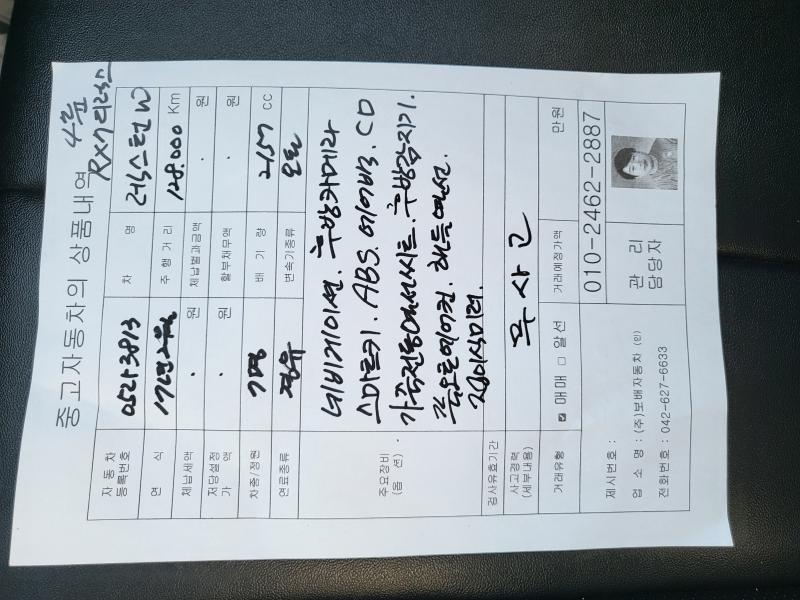 중고자동차의 상품내역
4륜
RX7
자동차
등록번호
차 명
렉스턴 W
연 식
17년
주 행 거 리
128.000 Km
체납세액
. 원
체납벌과금액
. 원
저당설정
가 액
. 원
할부채무액
. 원
차종/정원
7명
배 기 량
2157 cc
연료종류
경유
변속기종류
오토
주요장비
(옵 션)
네비게이션. 후방카메라
스마트키. ABS. 에어백. CD
가죽전동열선시트. 후방감지기.
풀오토에어컨. 핸들열선.
접이식미러.
검사유효기간
사고경력
(세부내용)
무사고
거래유형
☑ 매매 □ 알선
거래예정가액
만원
제시번호 :
업 소 명 : (주)보배자동차 (인)
전화번호 : 042-627-6633
관 리
담당자
010-2462-2887